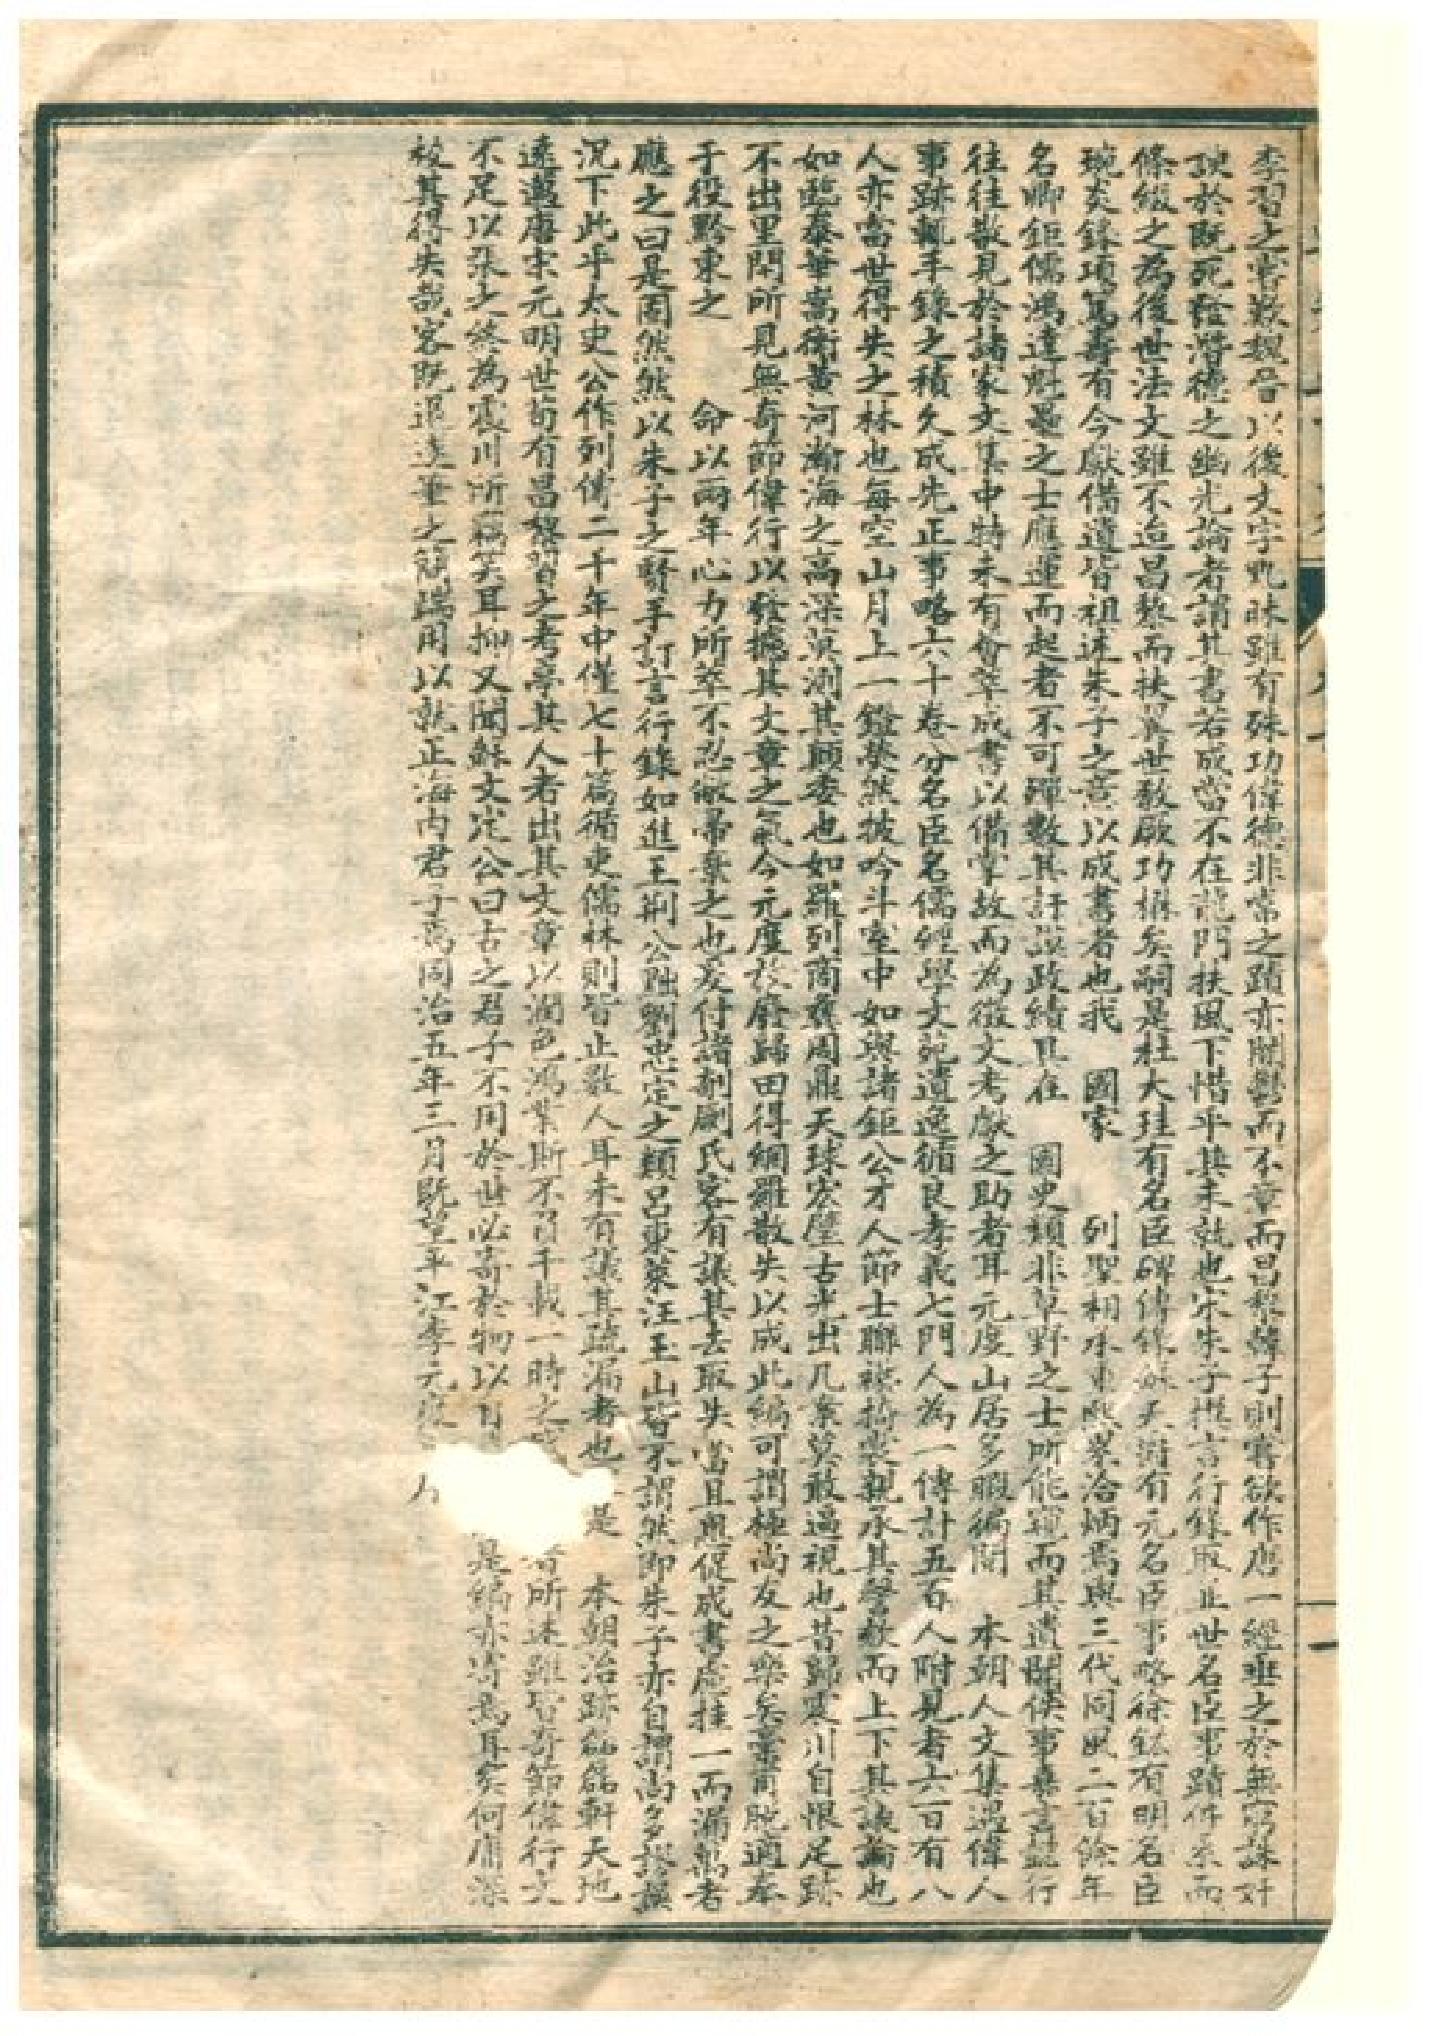 李習之嘗歎魏晉以後文字卑昧雖有殊功偉德非常之蹟亦闇鬱而不章而昌黎韓子則嘗欲作唐一經垂之於無窮誅奸
諛於既死發潛德之幽光論者謂其書若成當不在龍門扶風下惜乎其未就也宋朱子撰言行錄取並世名臣事蹟件系而
條綴之為後世法文雖不迨昌黎而扶翼世教厥功懋矣嗣是杜大珪有名臣碑傳錄蘇天爵有元名臣事略徐紘有明名臣
琬炎錄項篤壽有今獻備遺皆祖述朱子之意以成書者也我 國家 列聖相承重熙累洽炳焉與三代同風二百餘年
名卿鉅儒鴻達魁壘之士應運而起者不可殫數其訏謨政績具在 國史類非草野之士所能窺而其遺聞佚事嘉言懿行
往往散見於諸家文集中特未有會萃成書以備掌故而為徵文考獻之助者耳元度山居多暇徧閱 本朝人文集遇偉人
事跡輒手錄之積久成先正事略六十卷分名臣名儒經學文苑遺逸循良孝義七門人為一傳計五百人附見者六百有八
人亦當世得失之林也每空山月上一鐙熒然披吟斗室中如與諸鉅公才人節士聯襟摳裳親承其謦欬而上下其議論也
如臨泰華嵩衡黃河瀚海之高深莫測其顛委也如羅列商彝周鼎天球宏璧古光出几案莫敢逼視也昔歸震川自恨足跡
不出里閈所見無奇節偉行以發攄其文章之氣今元度放廢歸田得網羅散失以成此編可謂極尚友之樂矣稾甫脫適奉
于役黔東之 命以兩年心力所萃不忍敝帚棄之也爰付諸剞劂氏客有議其去取失當且悤促成書慮挂一而漏萬者
應之曰是固然然以朱子之賢手訂言行錄如進王荊公黜劉忠定之類呂東萊汪玉山皆不謂然即朱子亦自謂尚多謬誤
況下此乎太史公作列傳二千年中僅七十篇循吏儒林則皆止數人耳未有議其疏漏者也 是 本朝治跡磊磊軒天地
遠邁唐宋元明世苟有昌黎習之考亭其人者出其文章以潤色鴻業斯不負千載一時之 者所述雖皆奇節偉行文
不足以張之終為震川所竊笑耳抑又聞蘇文定公曰古之君子不用於世必寄於物以自 是編亦寄焉耳矣何庸深
校其得失哉客既退遂筆之簡端用以就正海內君子焉同治五年三月既望平江李元度